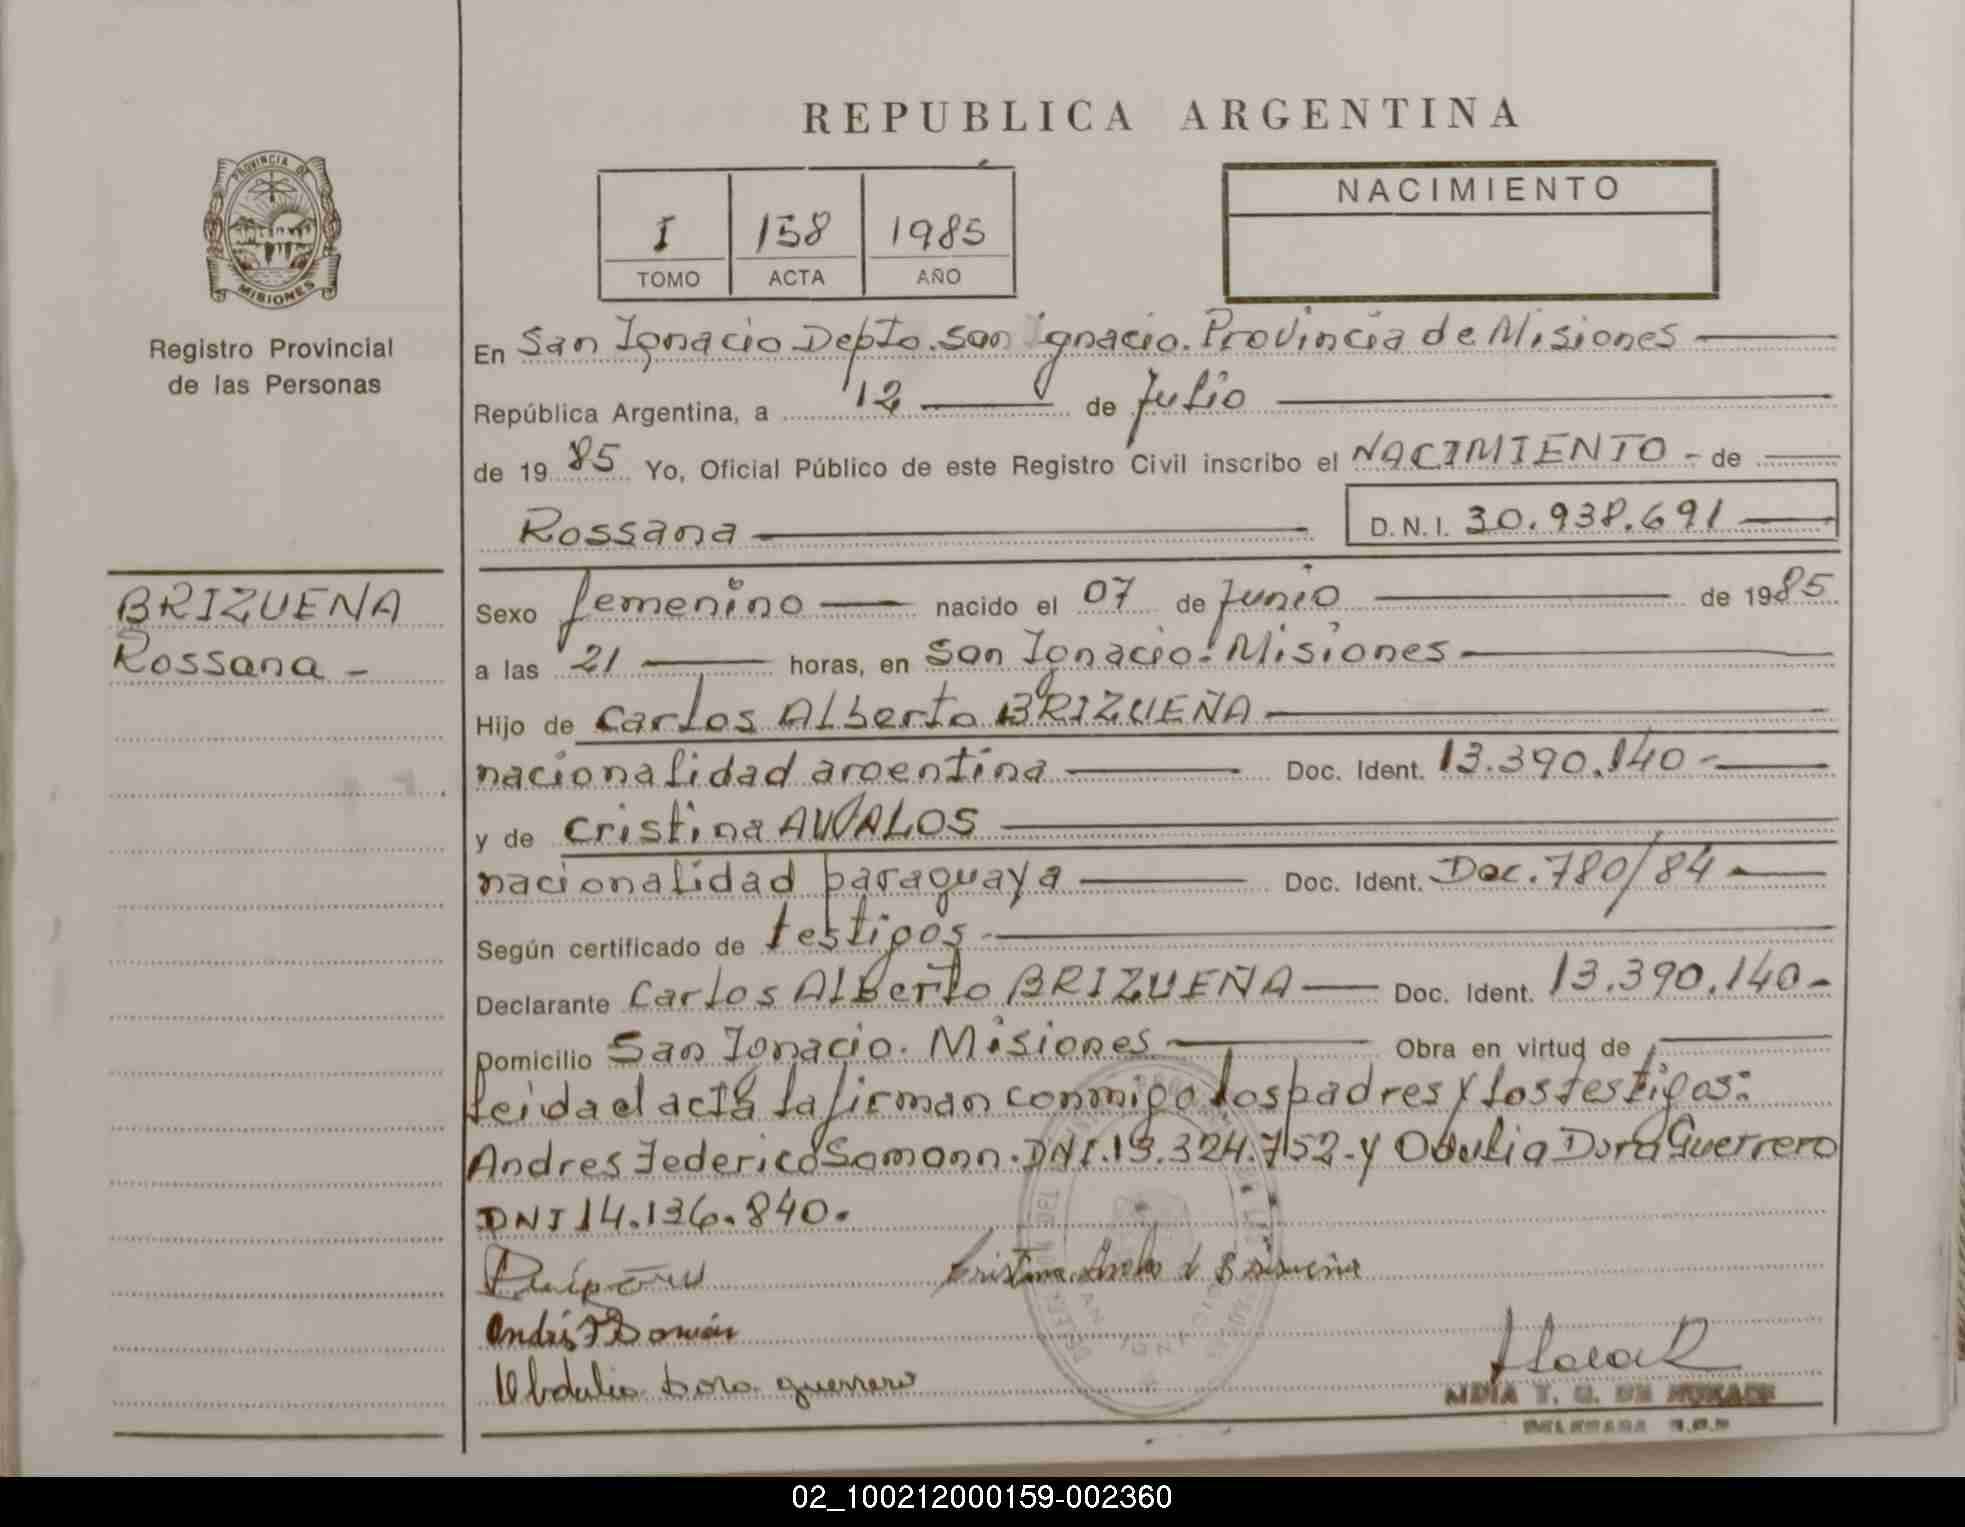 REPUBLICA ARGENTINA
PROVINCIA DE
MISIONES
Registro Provincial
de las Personas
I 158 1985
TOMO ACTA AÑO
NACIMIENTO
En San Ignacio Depto. San Ignacio. Provincia de Misiones
República Argentina, a 12 de Julio
de 1985 Yo, Oficial Público de este Registro Civil inscribo el NACIMIENTO - de
Rossana D.N.I. 30.938.691
BRIZUENA
Rossana -
Sexo femenino nacido el 07 de Junio de 1985
a las 21 horas, en San Ignacio. Misiones
Hijo de Carlos Alberto BRIZUEÑA
nacionalidad argentina Doc. Ident. 13.390.140-
y de Cristina AVVALOS
nacionalidad paraguaya Doc. Ident. Doc. 780/84
Según certificado de testigos
Declarante Carlos Alberto BRIZUEÑA Doc. Ident. 13.390.140-
Domicilio San Ignacio. Misiones Obra en virtud de
leida el acta la firman conmigo los padres y los testigos:
Andres Federico Somonn. DNI. 13.324.752- y Obdulia Dora Guerrero
DNI 14.136.840.
Cristina Avalos d Brisueña
Obdulia Dora guerrero
02_100212000159-002360